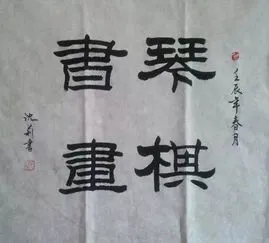 壬辰年春月
琴棋
書畫
沈荊書